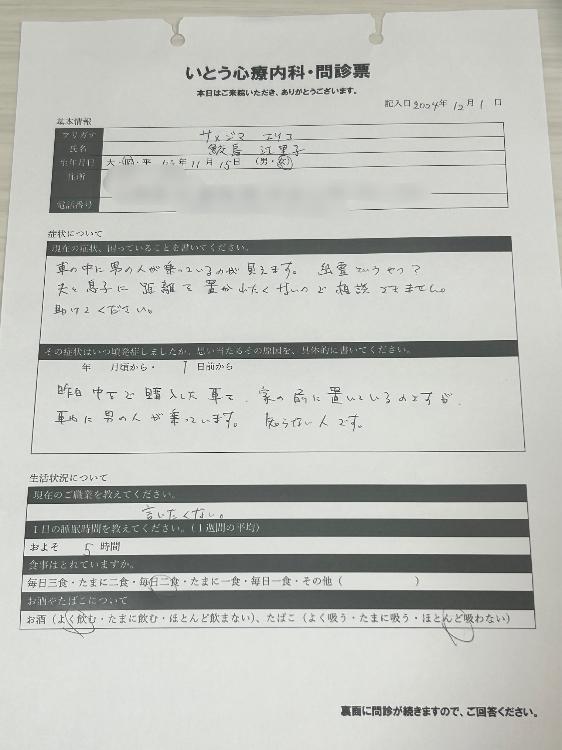 いとう心療内科・問診票
本日はご来院いただき、ありがとうございます。
記入日2024年 12月 1日
基本情報
フリガナ サメジマ エリコ
氏名 鮫島 江里子
生年月日 大・昭・平 63年 11月 15日 (男・女)
住所
電話番号
症状について
現在の症状、困っていることを書いてください。
車の中に男の人が乗っているのが見えます。 幽霊というやつ?
夫と息子に距離て置かれたくないので相談できません。
助けてください。
その症状はいつ頃発症しましたか。思い当たるその原因を、具体的に書いてください。
年 月頃から・ 1日前から
昨日中古で購入した車で、家の前に置いているのですが、
車内に男の人が乗っています。 知らない人です。
生活状況について
現在のご職業を教えてください。
言いたくない。
1日の睡眠時間を教えてください。(1週間の平均)
およそ 5 時間
食事はとれていますか。
毎日三食・たまに二食・毎日二食・たまに一食・毎日一食・その他( )
お酒やたばこについて
お酒(よく飲む・たまに飲む・ほとんど飲まない)、たばこ(よく吸う・たまに吸う・ほとんど吸わない)
裏面に問診が続きますので、ご回答ください。